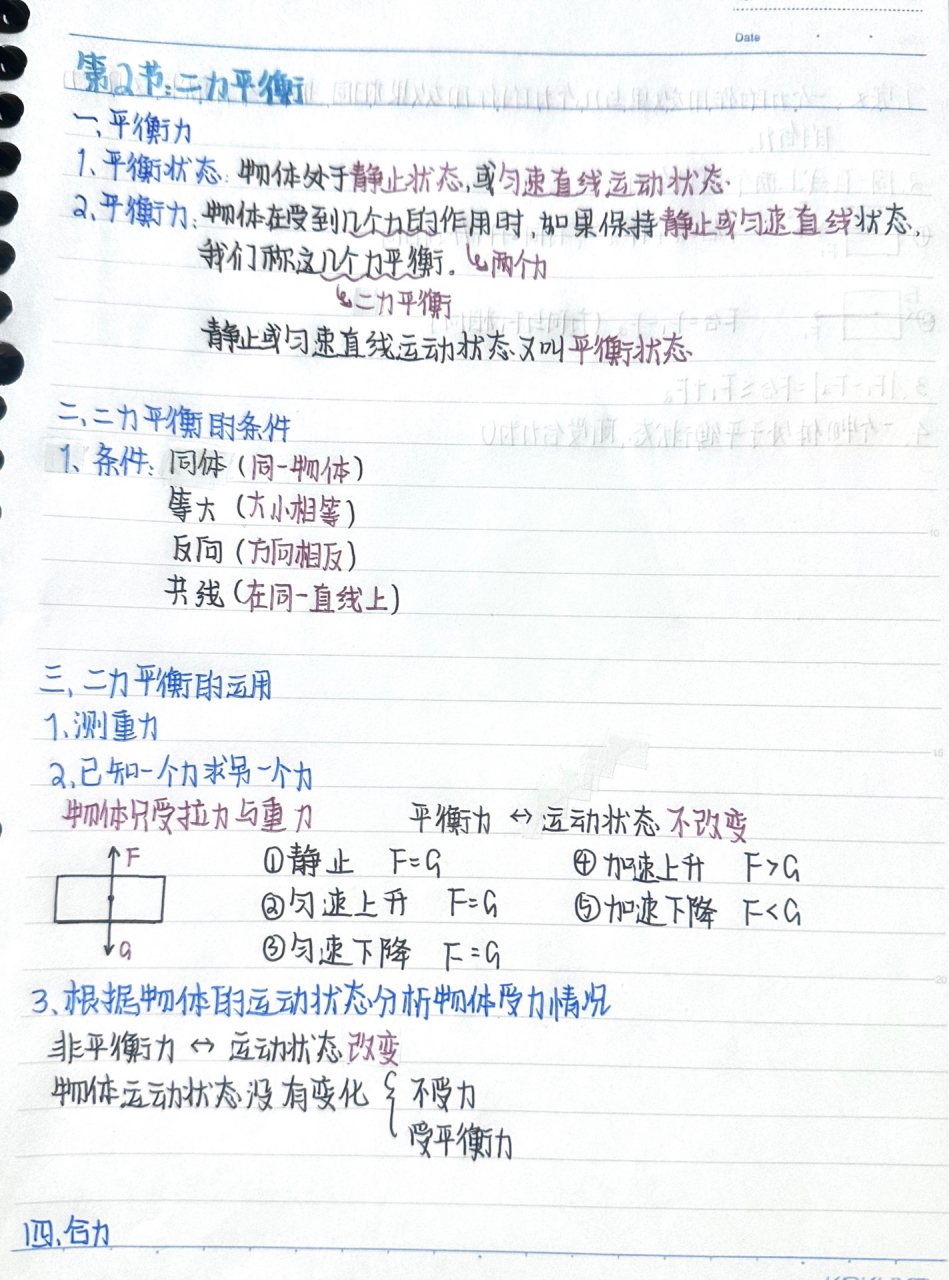 Date
第2节:二力平衡
一、平衡力
1、平衡状态:物体处于静止状态,或匀速直线运动状态.
2、平衡力:物体在受到几个力的作用时,如果保持静止或匀速直线状态,
我们称这几个力平衡。↳两个力
↳二力平衡
静止或匀速直线运动状态又叫平衡状态.
二、二力平衡的条件
1、条件:同体(同一物体)
等大(大小相等)
反向(方向相反)
共线(在同一直线上)
三、二力平衡的运用
1、测重力
2、已知一个力求另一个力
物体只受拉力与重力 平衡力↔运动状态不改变
F ①静止 F=G ④加速上升 F>G
②匀速上升 F=G ⑤加速下降 F<G
G ③匀速下降 F=G
3、根据物体的运动状态分析物体受力情况
非平衡力↔运动状态改变
物体运动状态没有变化{不受力
受平衡力
四、合力